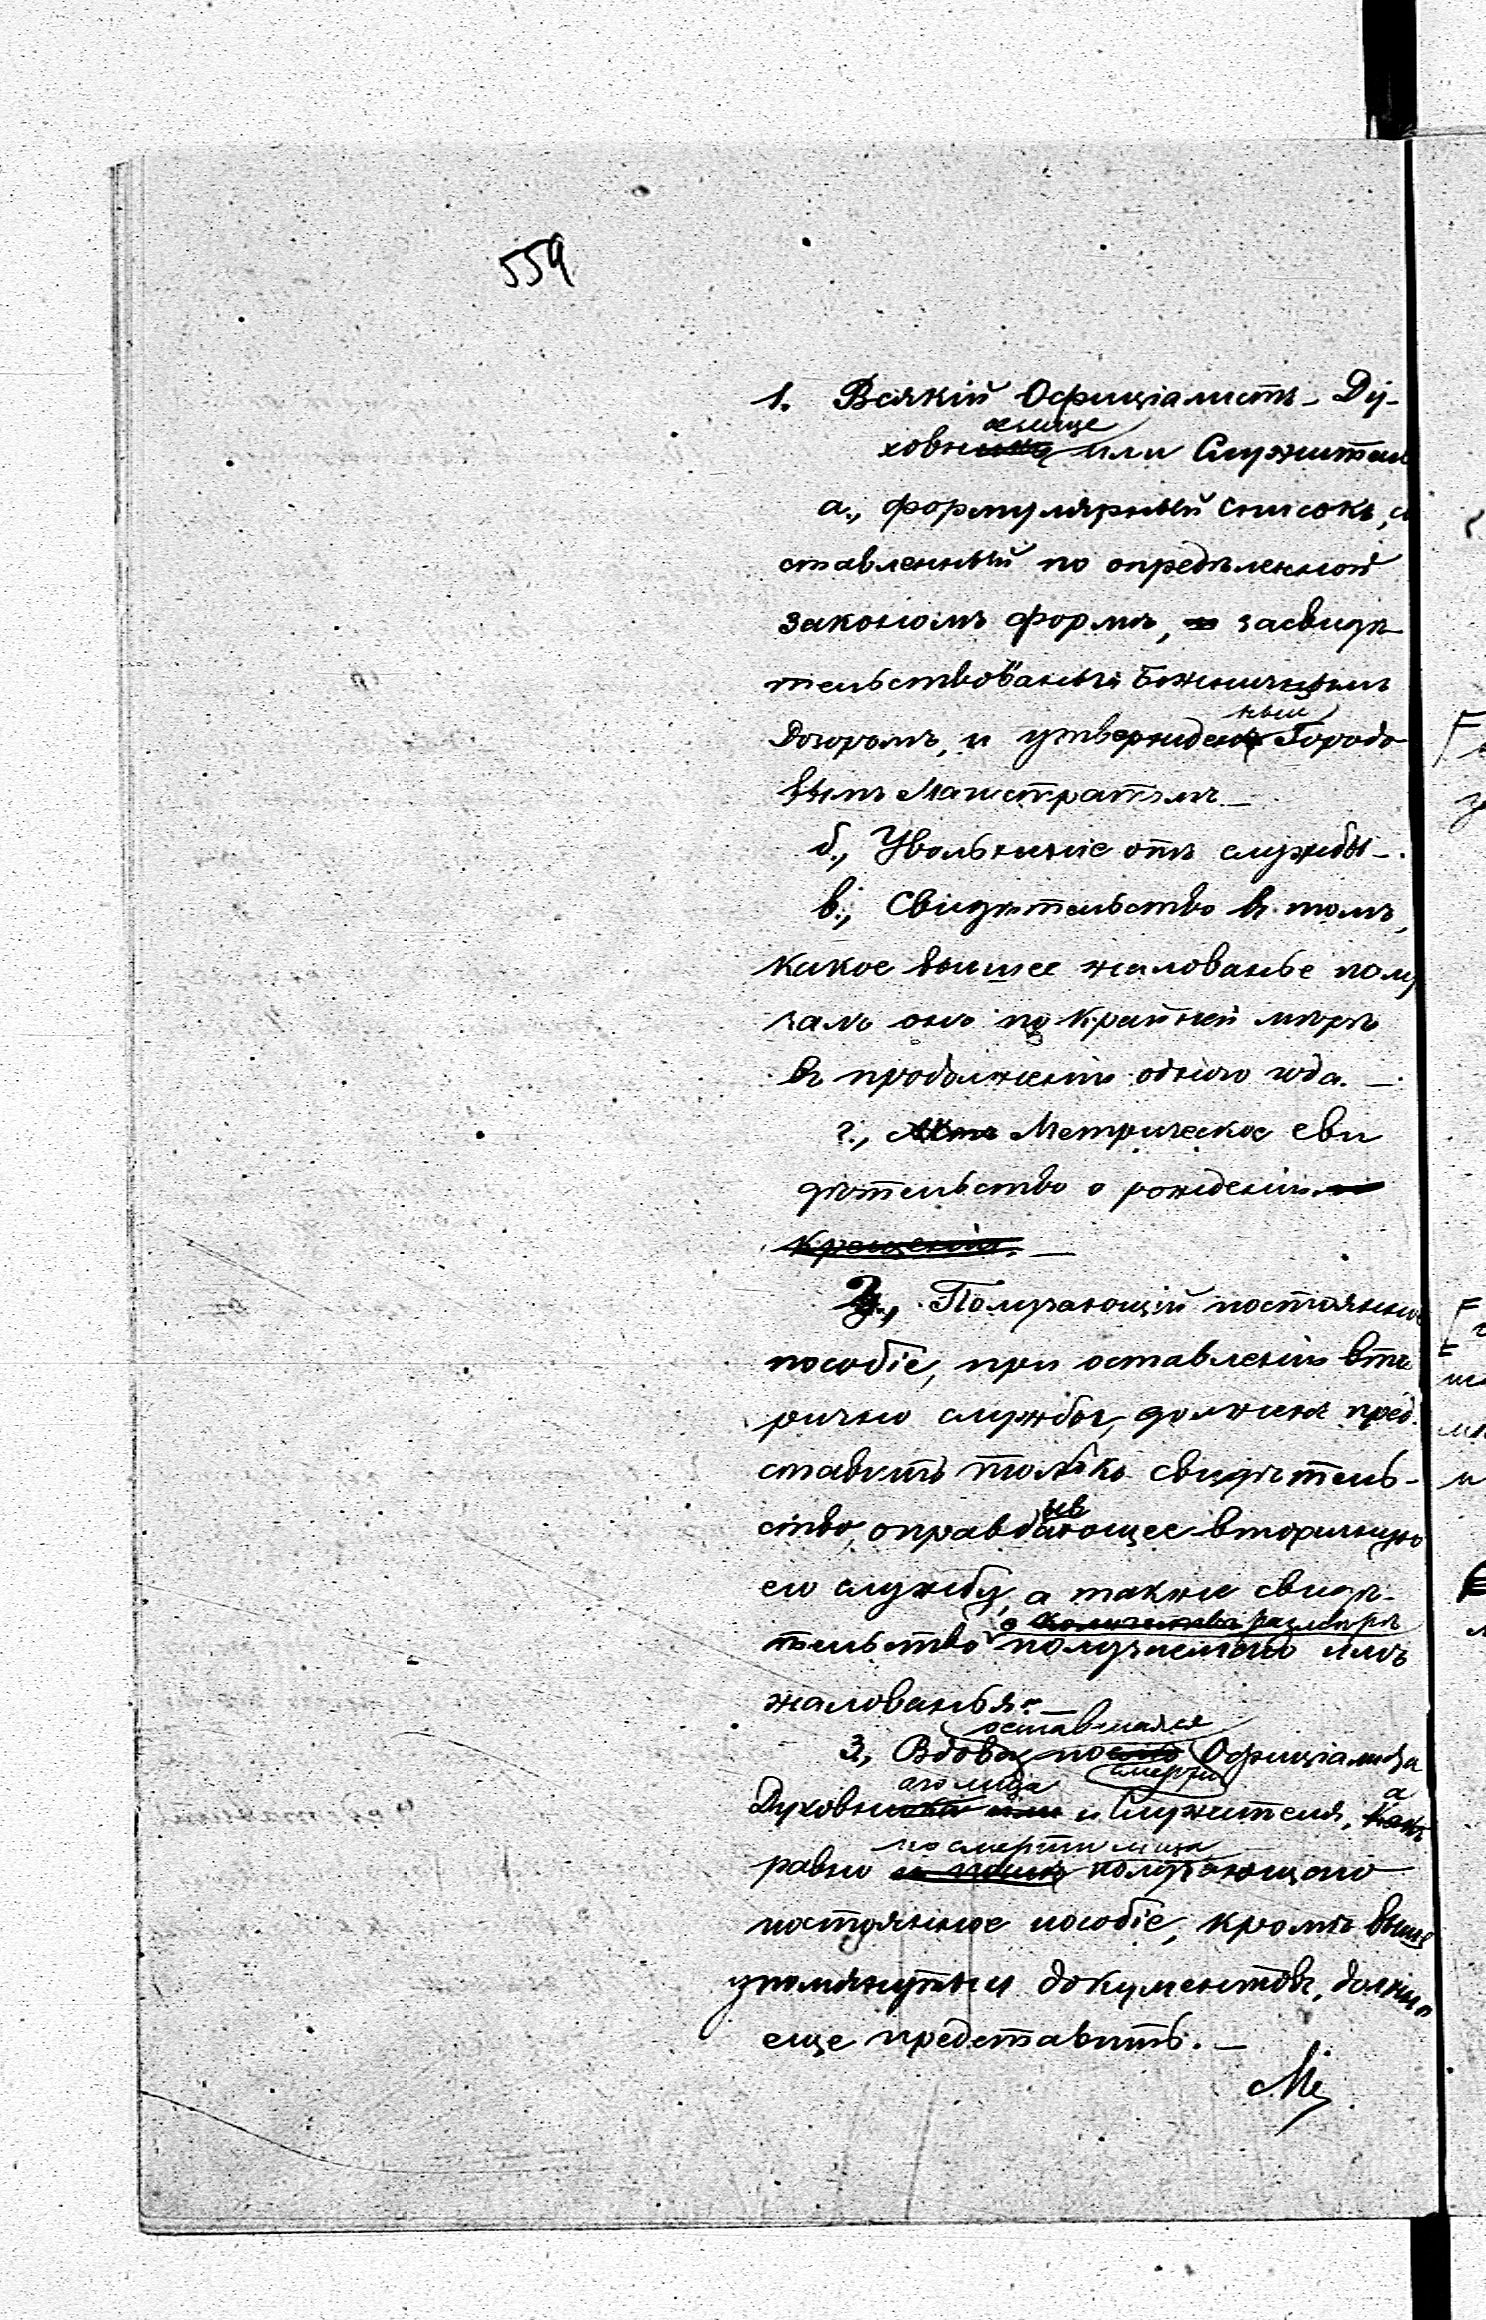 559
1. Всякій Офиціалистъ- Ду-
ховное лице или Служитель
а., формулярный списокъ, со
ставленный по опредѣленной
закономъ формѣ, засвидѣ
тельствованный Божничнымъ
Дозоромъ, и утвержденный Городо
вымъ Магистратомъ. —
б., Увольненіе отъ службы —.
в., Свидѣтельство въ томъ,
какое высшее жалованье полу
чалъ онъ по крайней мѣрѣ
въ продолженіи одного года. —
г., Актъ Метрическое сви
дѣтельство о рожденіи и
крещеніи. —
2., Получающій постоянное
пособіе, при оставленіи вто
рично службы, долженъ пред.
ставить только свидѣтель-
ство, оправдывающее вторичную
его службу, а также свидѣ-
о количествѣ размѣрѣ
тельство получаемаго имъ
жалованья. —
оставшаяся
3, Вдова по смерти Офиціалиста
Духовнаго лица и Служителя, а
равно по смерти лица получающаго
постоянное пособіе, кромѣ выше
упомянутыхъ документовъ, должна
еще представить. —